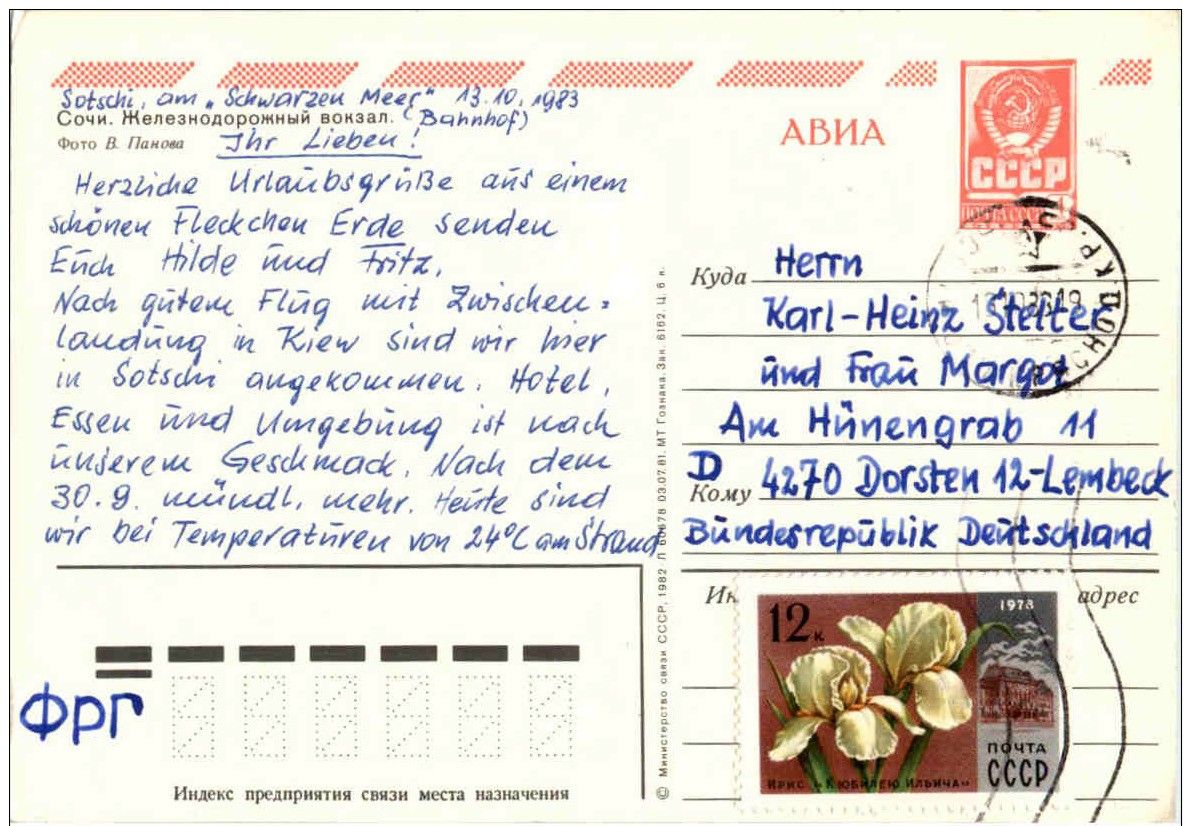 Sotschi, am „Schwarzen Meer" 13.10.1983
Сочи. Железнодорожный вокзал. (Bahnhof)
Фото В. Панова
Ihr Lieben!
Herzliche Urlaubsgrüße aus einem
schönen Fleckchen Erde senden
Euch Hilde und Fritz.
Nach gutem Flug mit Zwischen=
landung in Kiew sind wir hier
in Sotschi angekommen. Hotel,
Essen und Umgebung ist nach
unserem Geschmack. Nach dem
30.9. mündl. mehr. Heute sind
wir bei Temperaturen von 24°C am Strand
ФРГ
Индекс предприятия связи места назначения
© Министерство связи СССР, 1982 Л 60678 03.07.81. МТ Гознака. Зак. 6162. Ц. 6 к.
АВИА
СССР
ПОЧТА СССР
Куда Herrn
Karl-Heinz Stelter
und Frau Margot
Am Hünengrab 11
Кому D 4270 Dorsten 12-Lembeck
Bundesrepublik Deutschland
адрес
12 к.
1978
ПОЧТА
СССР
Ирис „К юбилею Ильича"